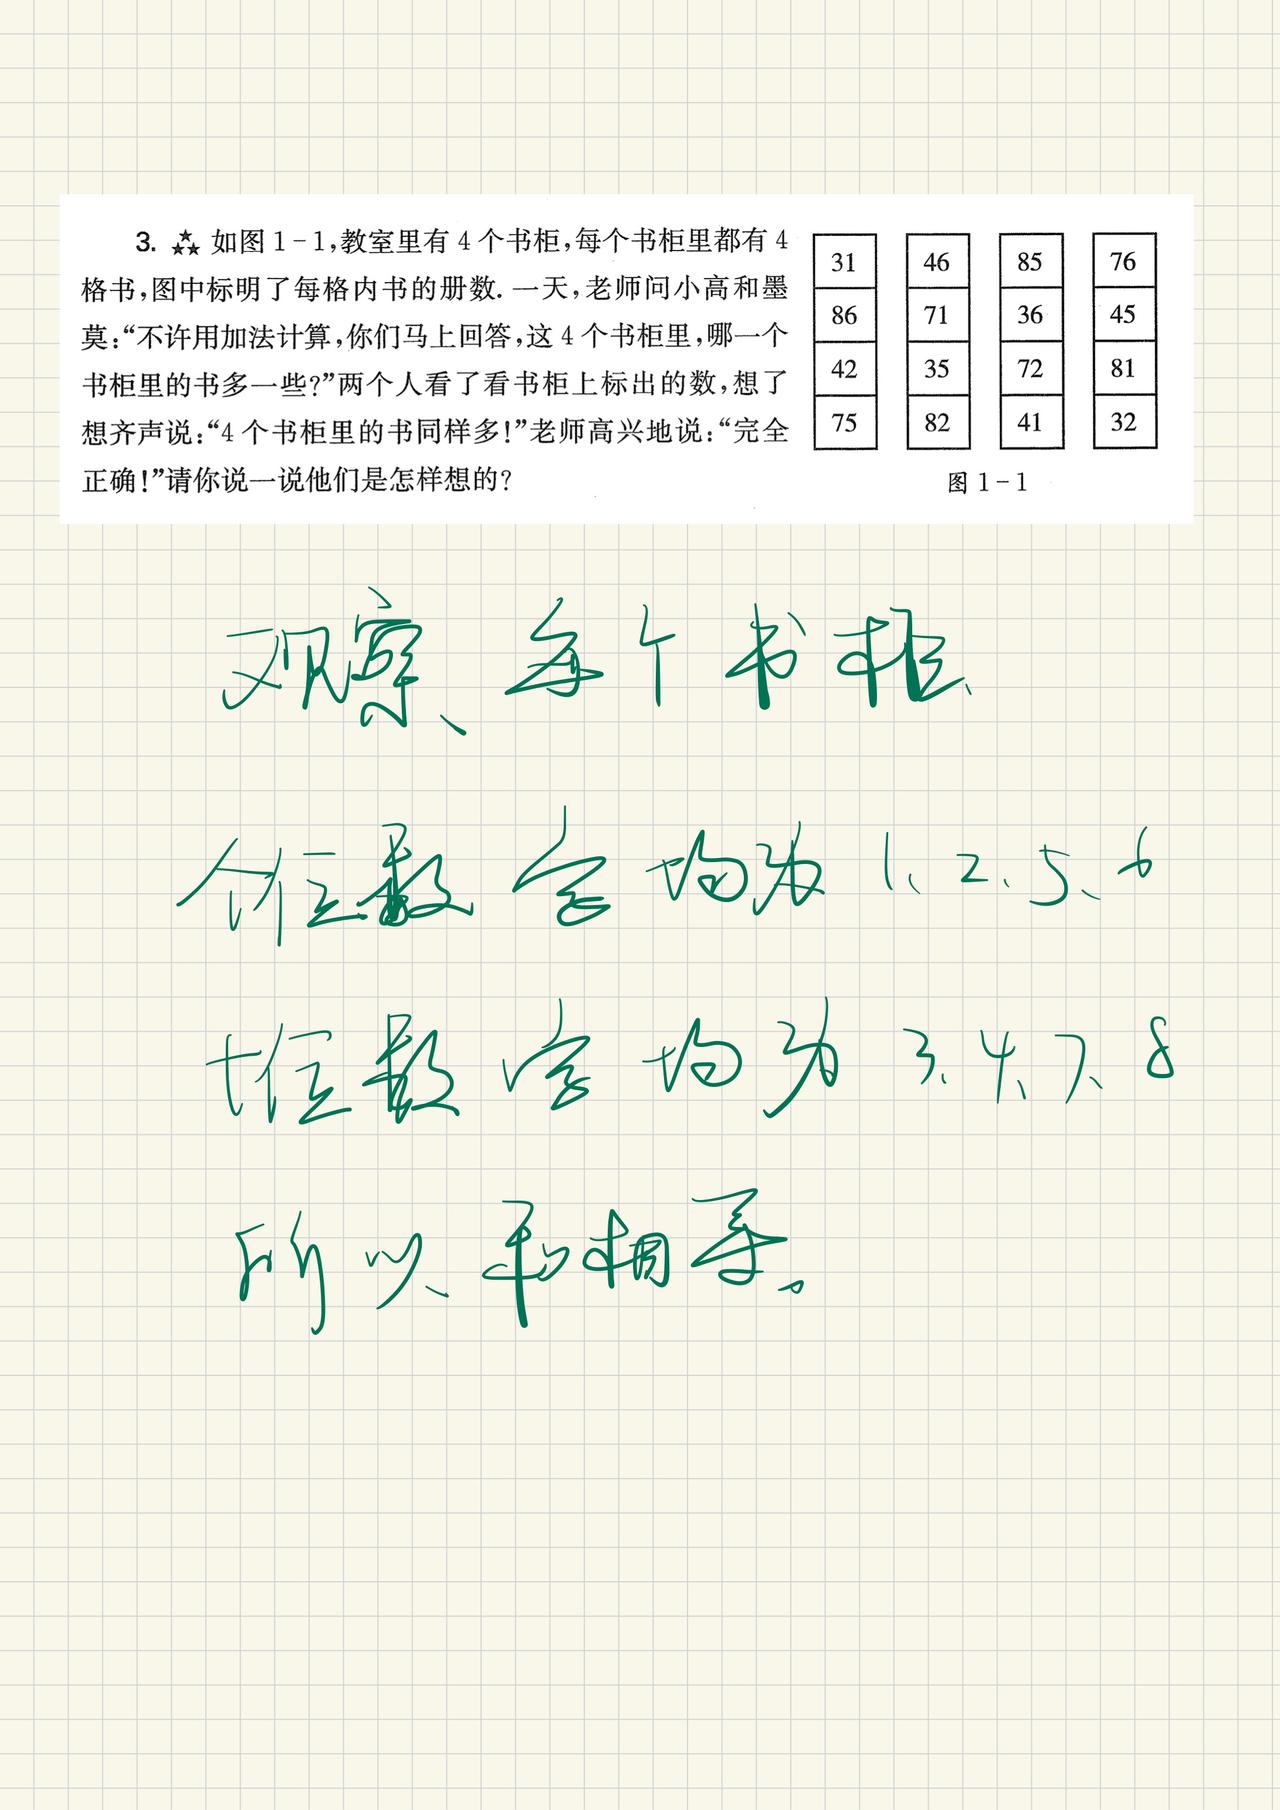 3. 如图1-1,教室里有4个书柜,每个书柜里都有4
格书,图中标明了每格内书的册数.一天,老师问小高和墨
莫:“不许用加法计算,你们马上回答,这4个书柜里,哪一个
书柜里的书多一些?”两个人看了看书柜上标出的数,想了
想齐声说:“4个书柜里的书同样多!”老师高兴地说:“完全
正确!”请你说一说他们是怎样想的?
31 46 85 76
86 71 36 45
42 35 72 81
75 82 41 32
图1-1
观察、每个书柜、
个位数字均为1、2、5、6
十位数字均为3、4、7、8
所以、和相等。